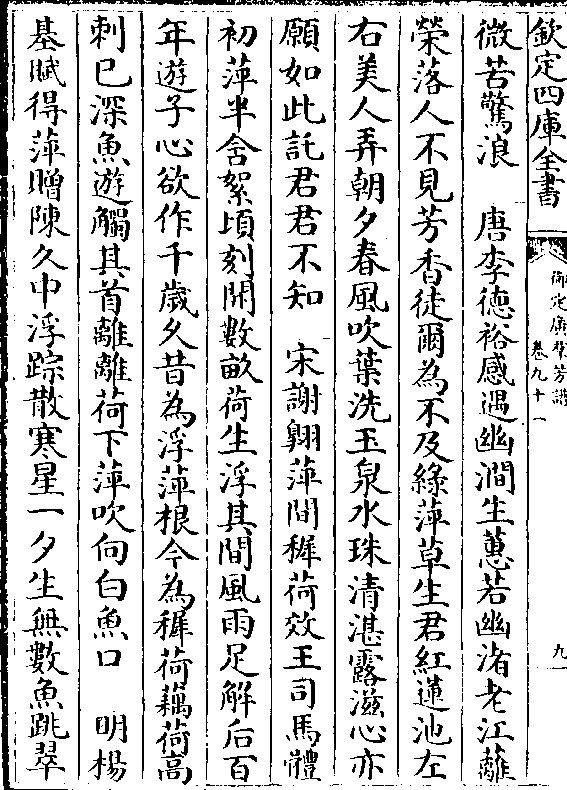 欽定四庫全書
御定廣羣芳譜
卷九十一
九
微苦驚浪　唐李德裕感遇幽澗生蕙若幽渚老江蘺
榮落人不見芳香徒爾為不及綠萍草生君紅蓮池左
右美人弄朝夕春風吹葉洗玉泉水珠清湛露滋心亦
願如此託君君不知　宋謝翺萍間穉荷效王司馬體
初萍半含絮頃刻開數畝荷生浮其間風雨足解后百
年遊子心欲作千歲久昔為浮萍根今為穉荷藕荷高
刺已深魚遊觸其首離離荷下萍吹向白魚口　明楊
基賦得萍贈陳久中浮踪散寒星一夕生無數魚跳翠